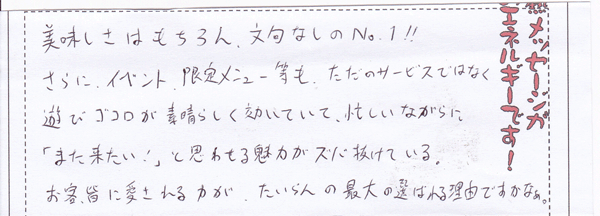 美味しさはもちろん、文句なしのNo.1!!
さらに、イベント、限定メニュー等も、ただのサービスではなく
遊びゴコロが素晴らしく効いていて、忙しいながらに
「また来たい!」と思わせる魅力がズバ抜けている。
お客皆に愛される力が、たいらんの最大の選ばれる理由ですかなぁ。
メッセージが
エネルギーです!